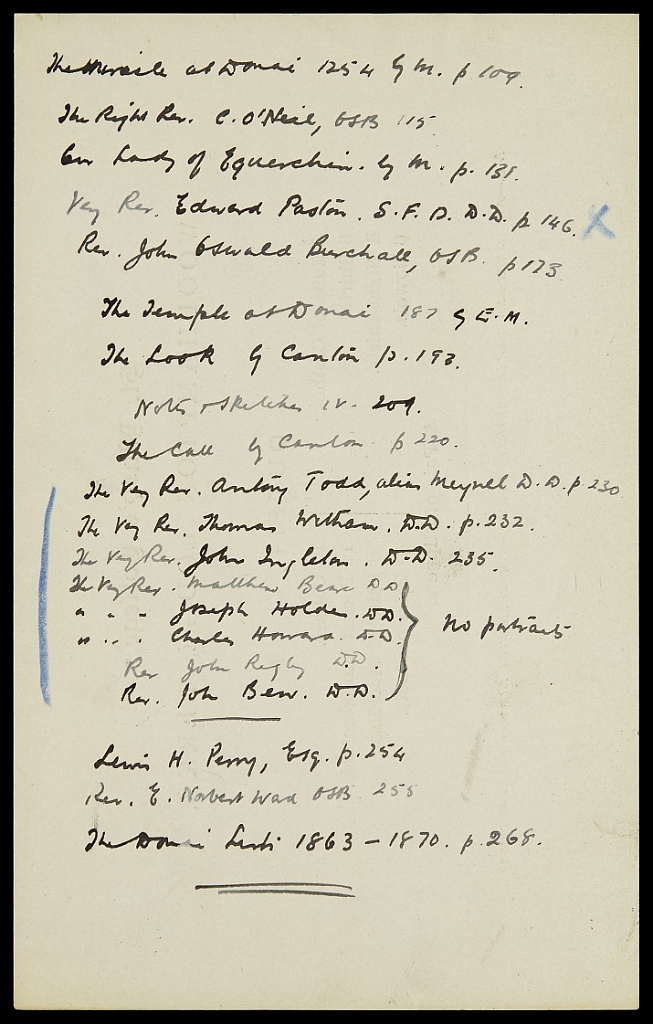 The Miracle at Douai 1254 by M. p 109.
The Right Rev. C. O'Neil, OSB 115
Our Lady of Equerchin. by M. p. 131.
Very Rev. Edward Paston. S.F.D. D.D. p 146. X
Rev. John Oswald Burchall, OSB. p 173
The Temple at Douai 187 by E.M.
The Look by Canton p. 193.
Notes & Sketches IV. 209.
The Call by Canton p 220.
The Very Rev. Antony Todd, alias Meynel D.D. p. 230
The Very Rev. Thomas Witham. D.D. p. 232.
The Very Rev. John Ingleton. D.D. 235.
The Very Rev. Matthew Beare DD
" " " Joseph Holden. DD.
" " " Charles Howard. D.D.
No portraits
Rev John Rigby D.D.
Rev. John Bew. D.D.
Lewis H. Perry, Esq. p. 254
Rev. E. Norbert Wad OSB 255
The Douai Lists 1863 – 1870. p. 268.